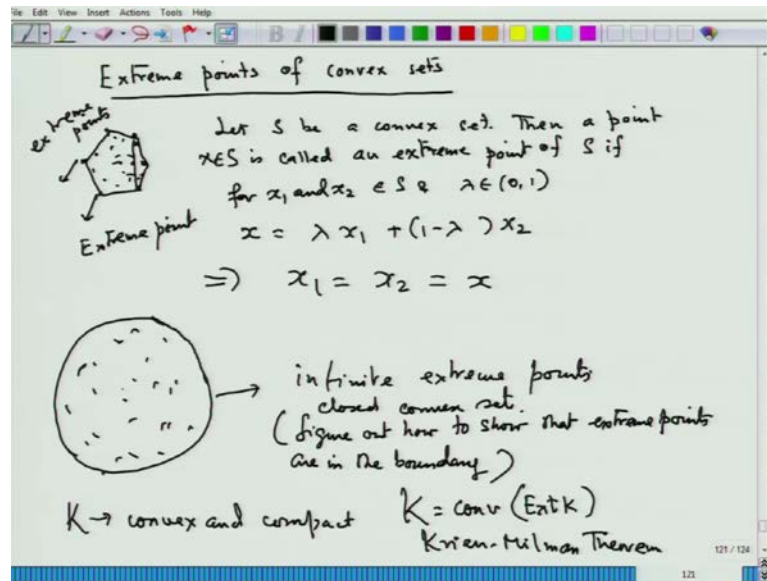 File Edit View Insert Actions Tools Help
Extreme points of convex sets
extreme
points
Let S be a convex set. Then a point
x∈S is called an extreme point of S if
for x₁ and x₂ ∈ S & λ∈(0,1)
Extreme point
x = λ x₁ + (1-λ) x₂
⇒ x₁ = x₂ = x
infinite extreme points
closed convex set.
(figure out how to show that extreme points
are in the boundary)
K → convex and compact K = conv (Ext K)
Krien-Milman Theorem
121 / 124
121